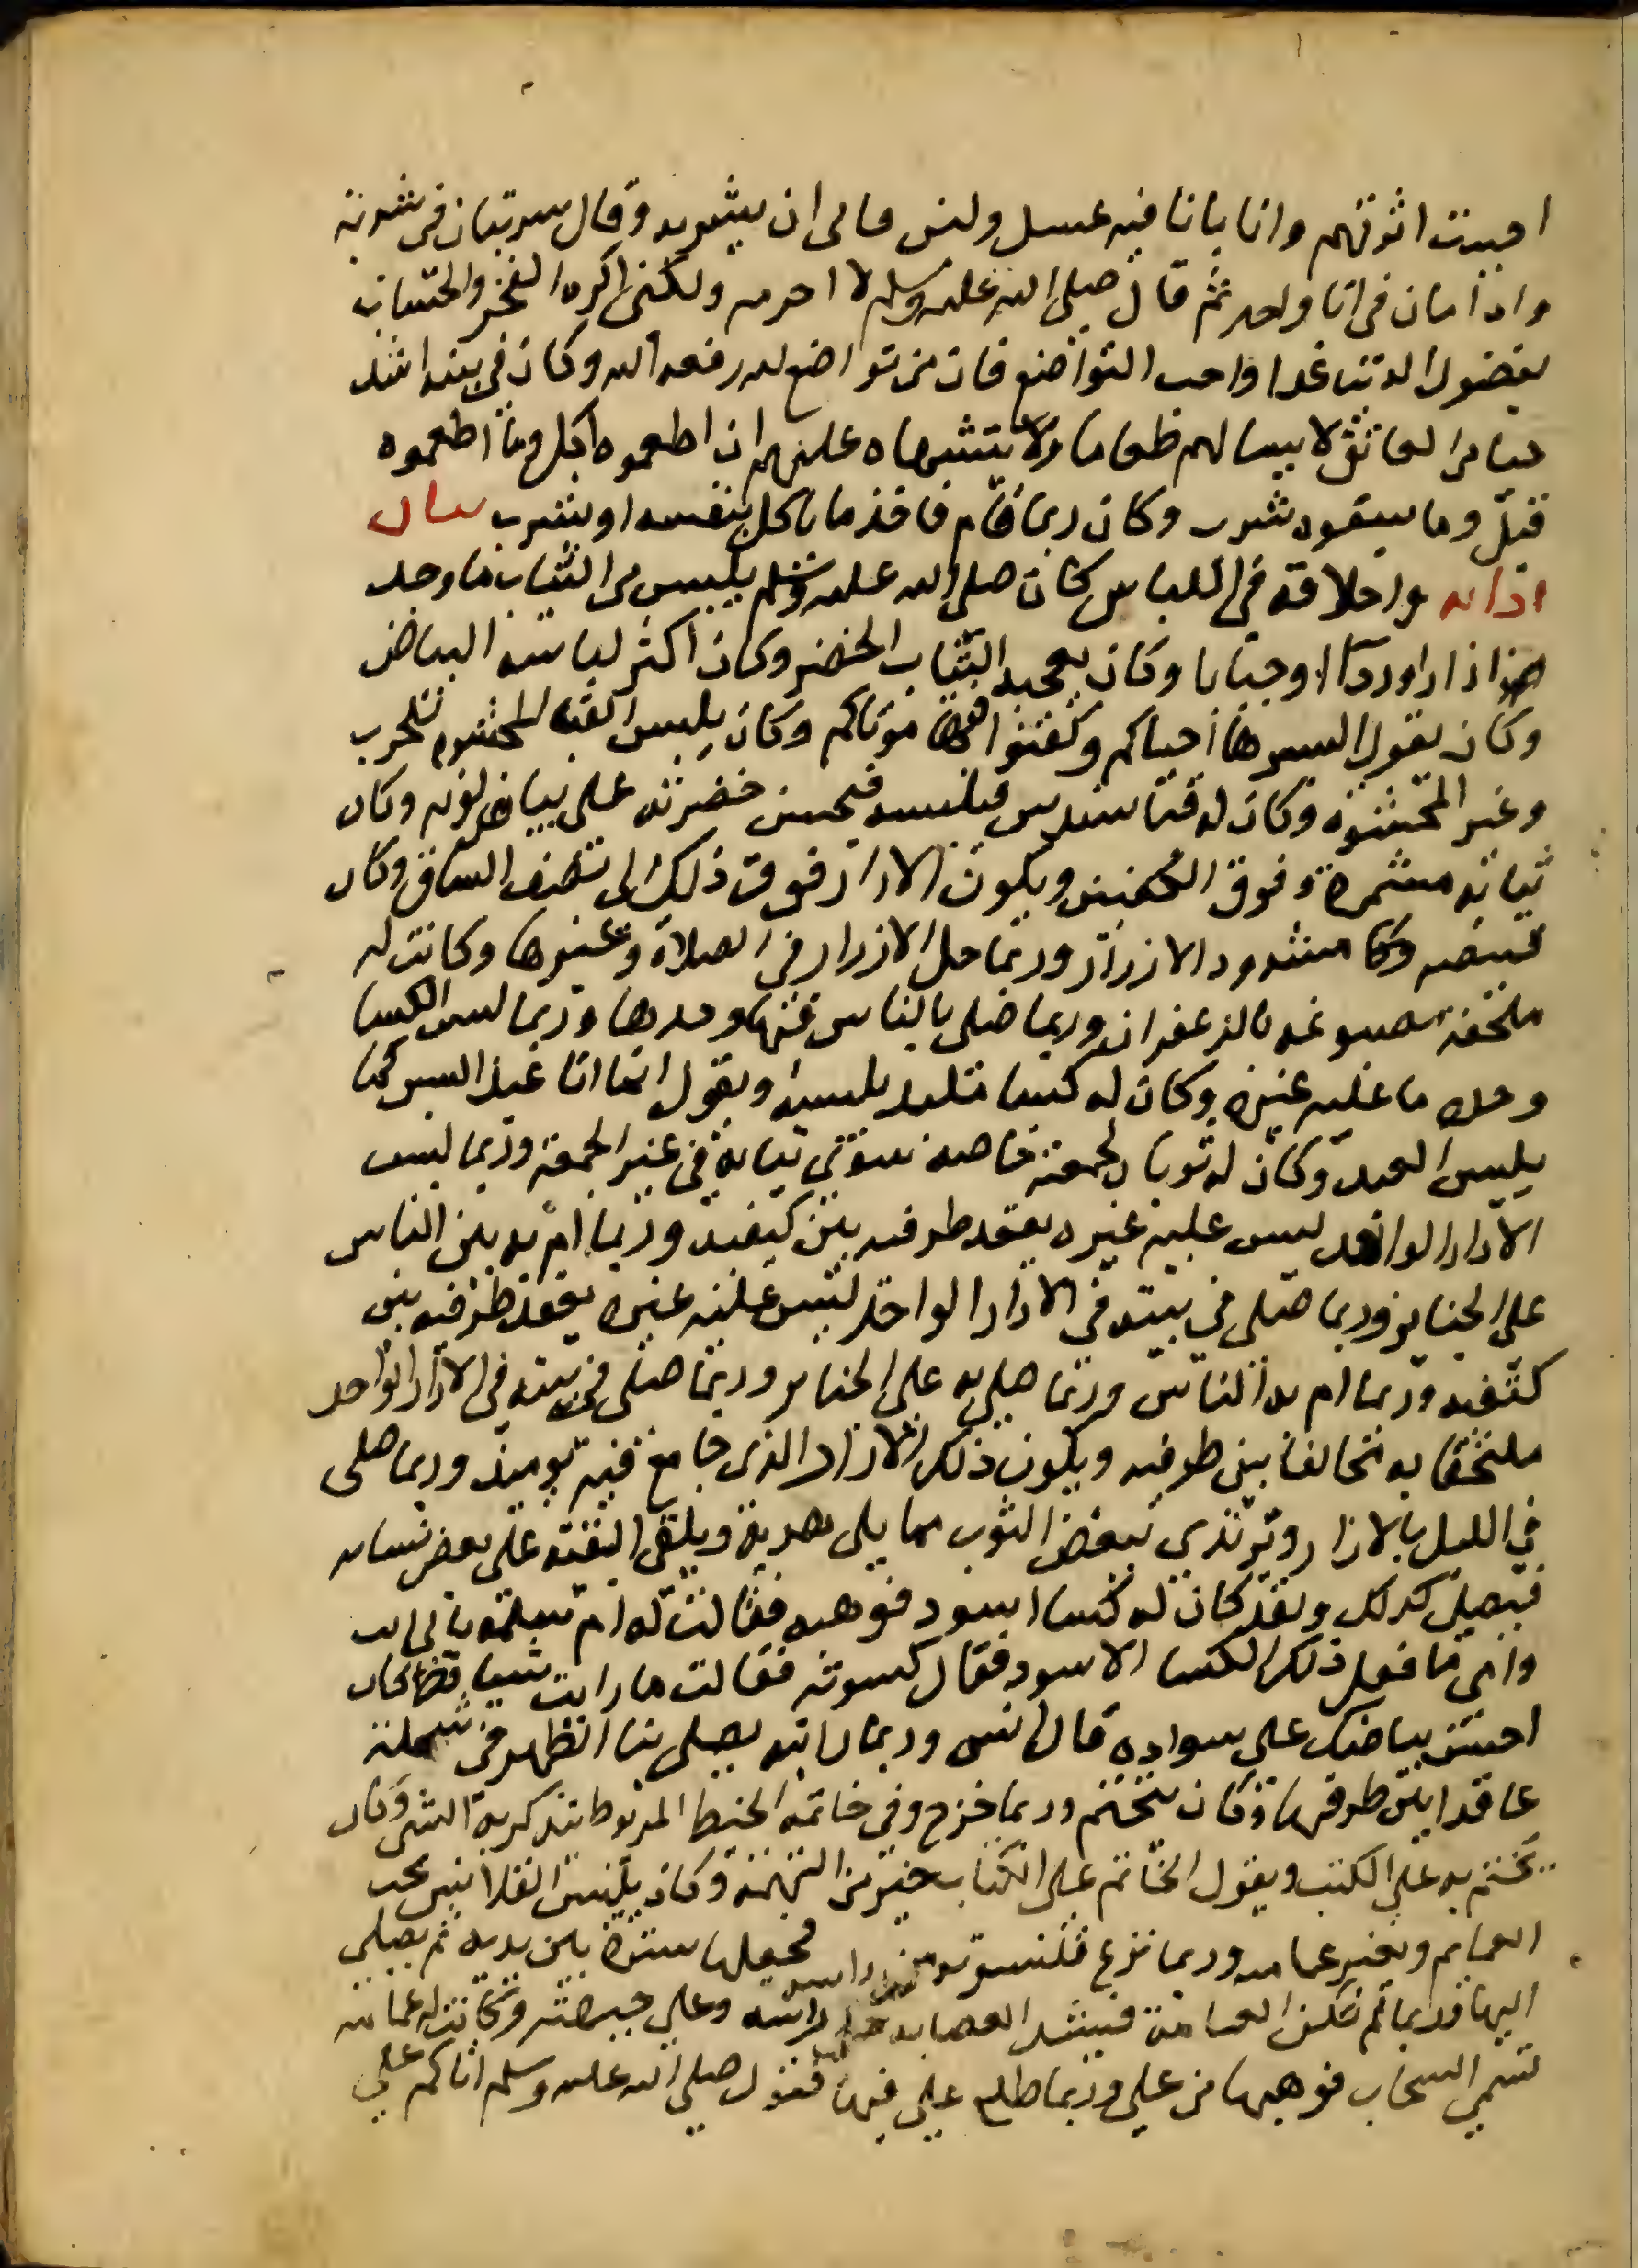 احببت اثرتهم واتا باناء فيه عسل ولبن فابى ان يشربه وقال شربتان في شربة
واداما‌ن في انا واحد ثم قال صلى الله عليه وسلم لا احرمه ولكنى اكره الفخر والحساب
بفضول الدنيا غدا واحب التواضع فان من تواضع لله رفعه الله وكان في بيته اشد
حيا من العاتق لا يسالهم طعاما ولا يتشهاه عليهم ان اطعموه اكل وما اطعموه
قبل وما سقوه شرب وكان ربما قام فاخذ ما ياكل بنفسه او يشرب بيان
ادابه واخلاقه في اللباس كان صلى الله عليه وسلم يلبس من الثياب ما وجد
من ازار او ردا او جبابا وكان يعجبه الثياب الخضر وكان اكثر لباسه البياض
وكان يقول البسوها احياكم وكفنوا فيها موتاكم وكان يلبس القبا المحشو للحرب
وغير المحشو وكان له قبا سندس فيلبسه فيحسن خضرته على بياض لونه وكان
ثيابه مشمرة فوق الكعبين ويكون الازار فوق ذلك الى نصف الساق وكان
قميصه مشدود الازرار وربما حل الازرار في الصلاة وغيرها وكانت له
ملحفة مصبوغه بالزعفران وربما صلى بالناس فيها وحدها وربما لبس الكسا
وحده ما عليه غيره وكان له كسا ملبد يلبسه ويقول انما انا عبد البس كما
يلبس العبد وكان له ثوبا لجمعته خاصة سوى ثيابه في غير الجمعة وربما لبس
الازار الواحد ليس عليه غيره يعقد طرفيه بين كتفيه وربما ام به بين الناس
على الجنايز وربما صلى في بيته في الازار الواحد ليس عليه غيره يعقد طرفيه بين
كتفيه وربما ام به الناس وربما صلى به على الجنايز وربما صلى في بيته في الازار الواحد
ملتحفا به مخالفا بين طرفيه ويكون ذلك الازار الذي جامع فيه يوميذ وربما صلى
في الليل بالازار ويرتدي ببعض الثوب مما يلي هدبه ويلقي البقية على بعض نسايه
فيصلي كذلك ولقد كان له كسا اسود فوهبه فقالت له ام سلمة بابي انت
وامي ما فعل ذلك الكسا الاسود فقال كسوته فقالت ما رايت شيا قط كان
احسن بياضك على سواده قال انس وربما رايته يصلي بنا الظهر في شملة
عاقدا بين طرفيها وكان يتختم وربما خرج وفي خاتمه الخيط المربوط يتذكر به الشي وكان
يختم به على الكتب ويقول الخاتم على الكتاب خير من التهمة وكان يلبس القلانس تحت
العمايم وبغير عمامه وربما نزع قلنسوته من راسه فجعلها سترة بين يديه ثم يصلي
اليها وربما لم تكن العمامة فيشد العصابه على راسه وعلى جبهته وكانت له عمامه
تسمى السحاب فوهبها من علي وربما طلع علي فيها فيقول صلى الله عليه وسلم اتاكم علي